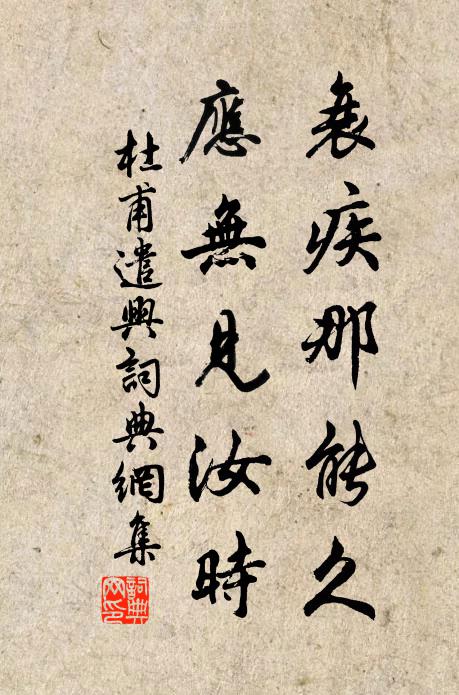 衰疾那能久
應無見汝時
杜甫遣興詞典網集
詞典
网印